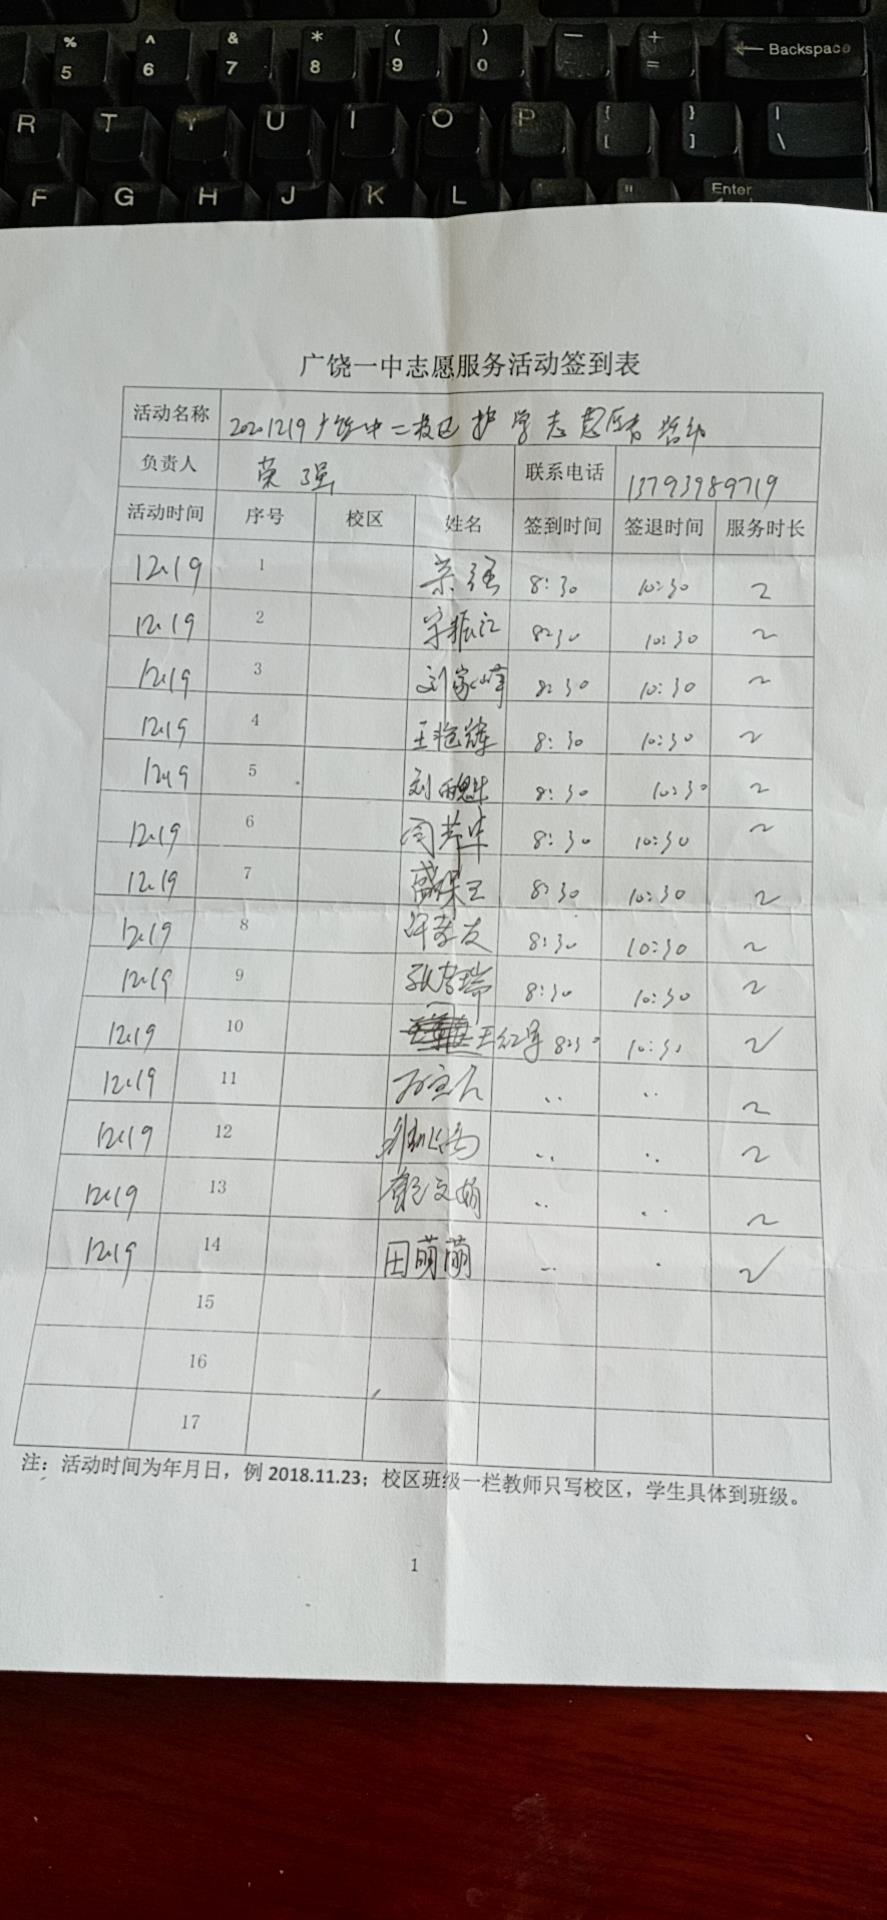 % ^ & * ( ) — + Backspace
5 6 7 8 9 0 - =
R T Y U I O P { } |
[ ] \
F G H J K L " Enter
广饶一中志愿服务活动签到表
活动名称 20201219广饶一中二校区护学志愿服务活动
负责人 荣强 联系电话 13793989719
活动时间 序号 校区 姓名 签到时间 签退时间 服务时长
12.19 1 荣强 8:30 10:30 2
12.19 2 8:30 10:30 2
12.19 3 刘家峰 8:30 10:30 2
12.19 4 王艳辉 8:30 10:30 2
12.19 5 8:30 10:30 2
12.19 6 周芳华 8:30 10:30 2
12.19 7 8:30 10:30 2
12.19 8 许孝友 8:30 10:30 2
12.19 9 8:30 10:30 2
12.19 10 王红军 8:30 10:30 2
12.19 11 .. .. 2
12.19 12 .. .. 2
12.19 13 .. .. 2
12.19 14 田萌萌 .. . 2
15
16
17
注：活动时间为年月日，例 2018.11.23；校区班级一栏教师只写校区，学生具体到班级。
1